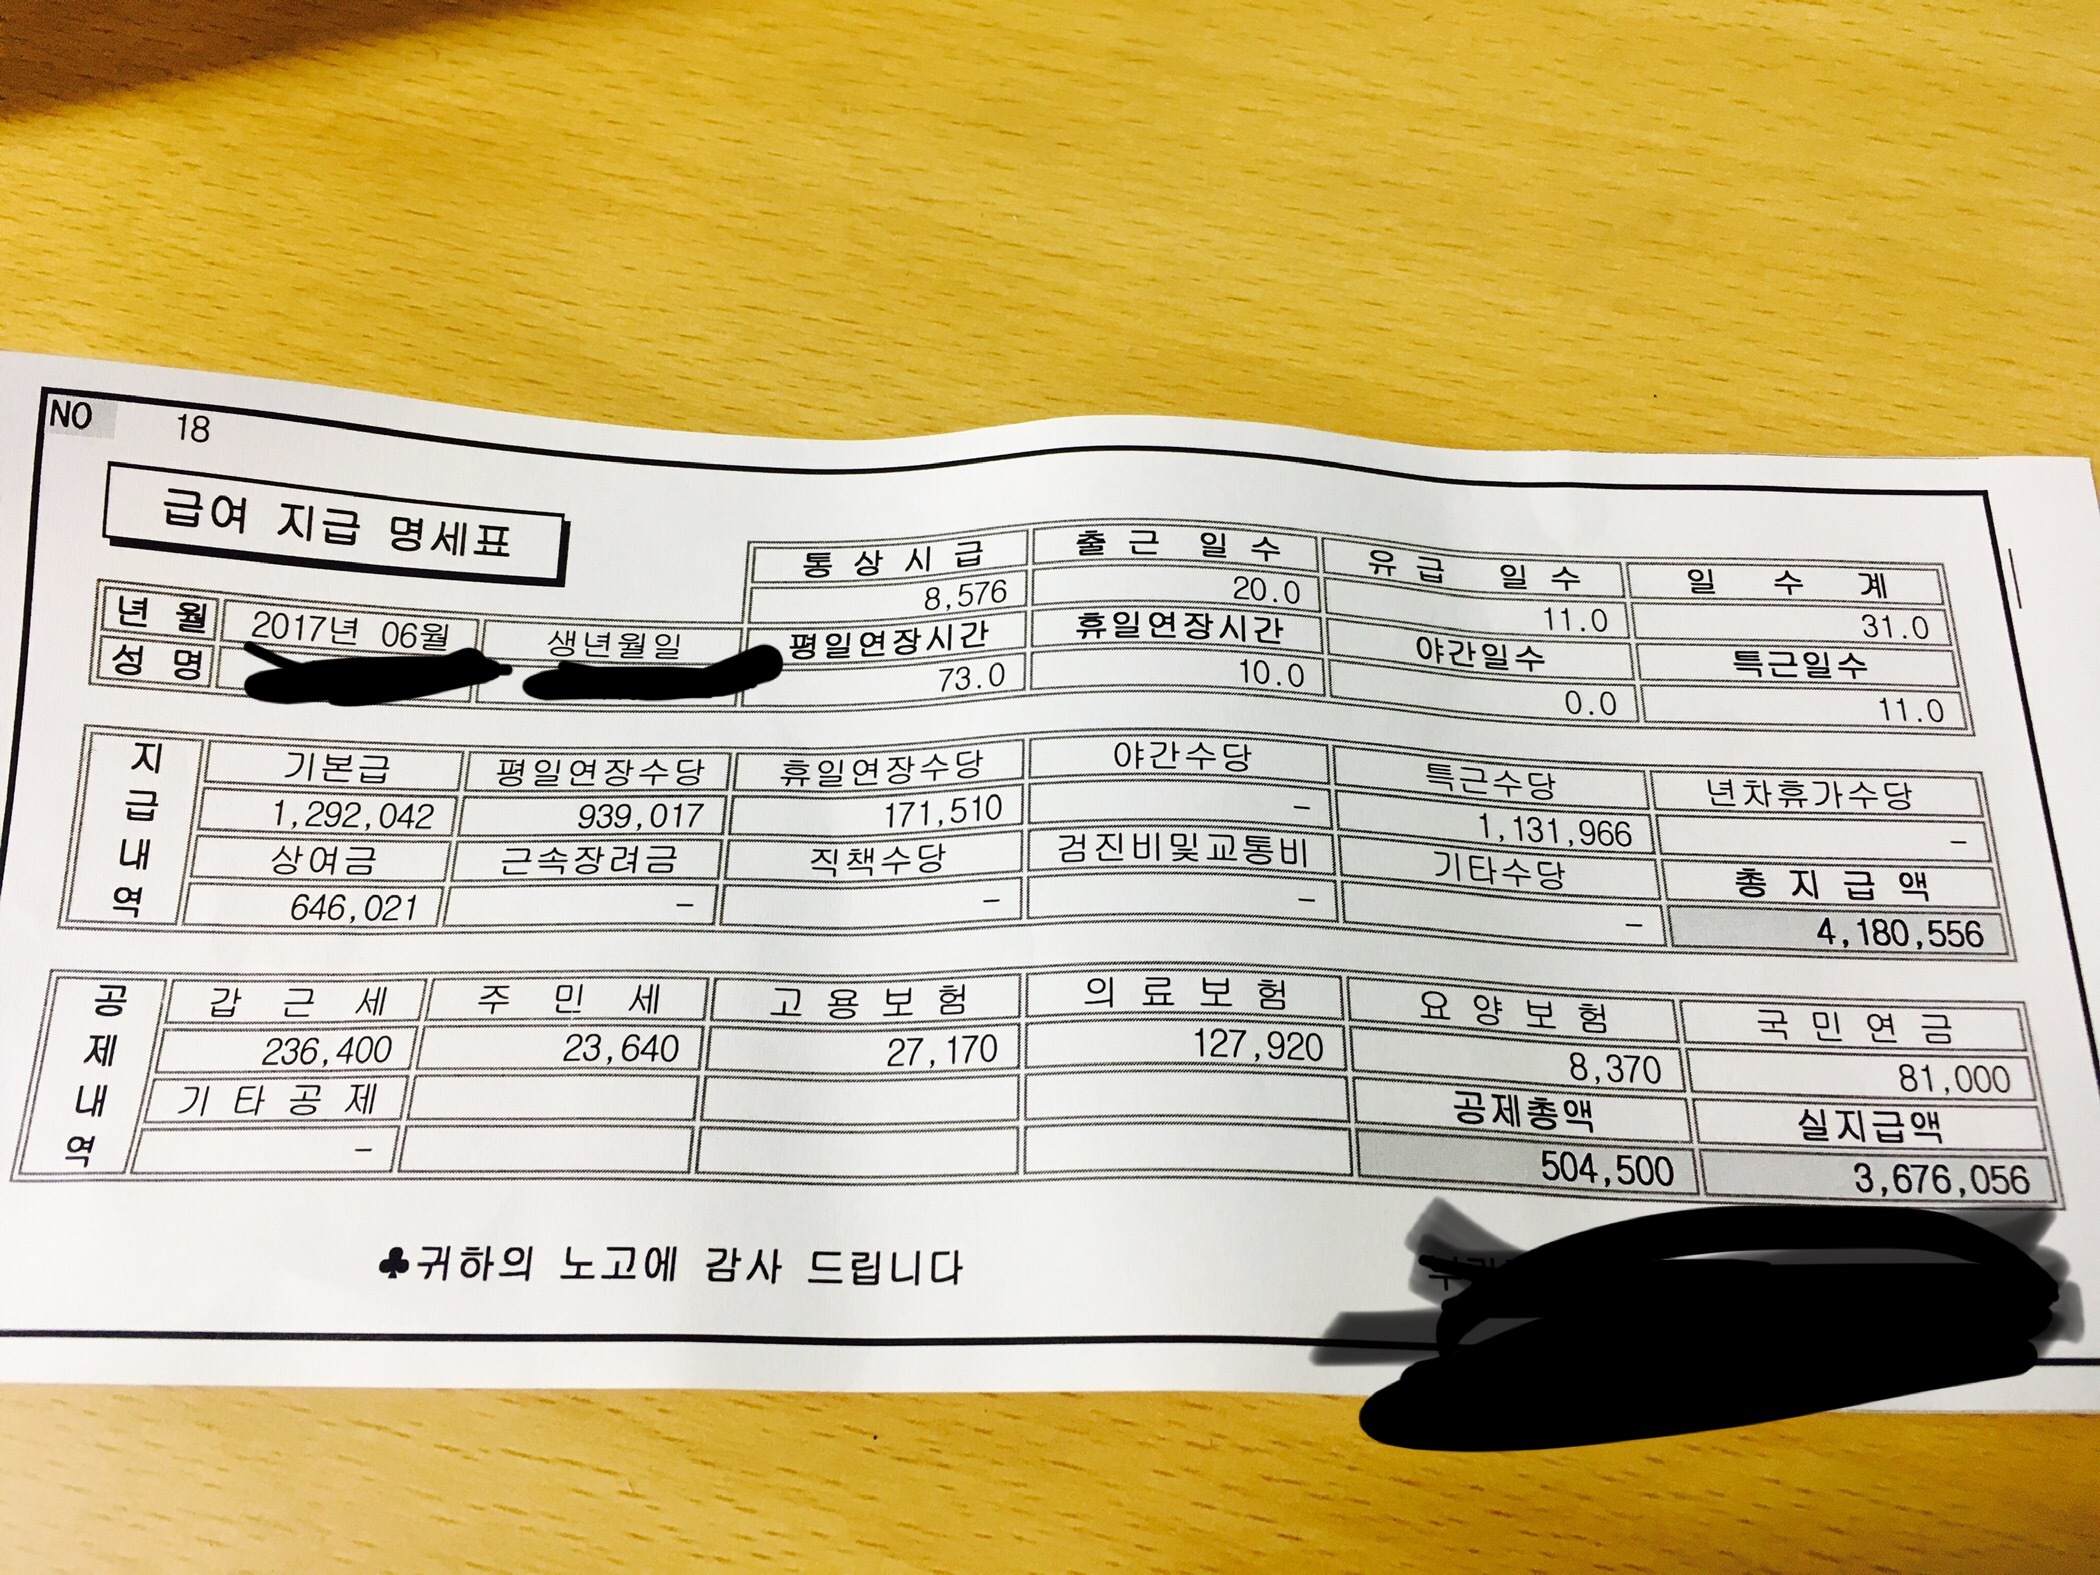 NO 18
급여 지급 명세표
통 상 시 급 출 근 일 수 유 급 일 수 일 수 계
8,576 20.0 11.0 31.0
년 월 2017년 06월 생년월일 평일연장시간 휴일연장시간 야간일수 특근일수
성 명 73.0 10.0 0.0 11.0
지급내역
기본급 평일연장수당 휴일연장수당 야간수당 특근수당 년차휴가수당
1,292,042 939,017 171,510 - 1,131,966 -
상여금 근속장려금 직책수당 검진비및교통비 기타수당 총 지 급 액
646,021 - - - - 4,180,556
공제내역
갑 근 세 주 민 세 고 용 보 험 의 료 보 험 요 양 보 험 국 민 연 금
236,400 23,640 27,170 127,920 8,370 81,000
기 타 공 제 공제총액 실지급액
- 504,500 3,676,056
♣귀하의 노고에 감사 드립니다